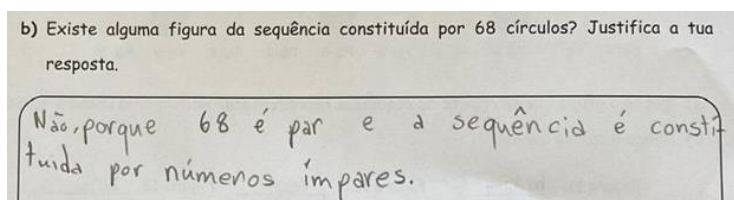 b) Existe alguma figura da sequência constituída por 68 círculos? Justifica a tua
resposta.
Não, porque 68 é par e a sequência é consti-
tuida por números ímpares.